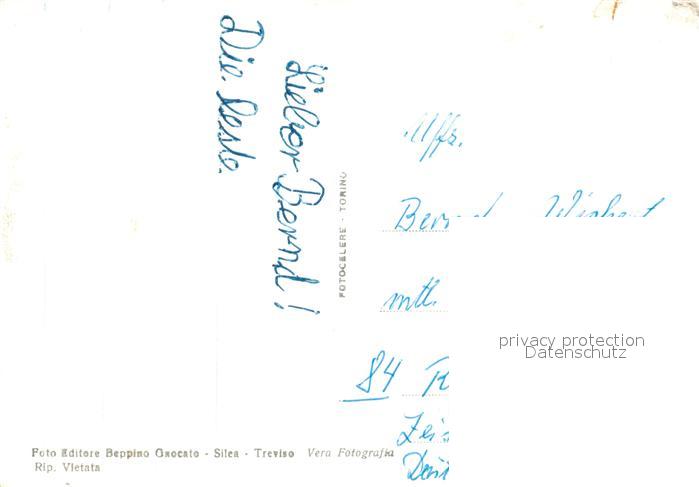 Lieber Bernd!
Die beste.
FOTOCELERE - TORINO
Uffz.
Bernd
mtl.
84
Foto Editore Beppino Gnocato - Silea - Treviso Vera Fotografia
Rip. Vietata
privacy protection
Datenschutz